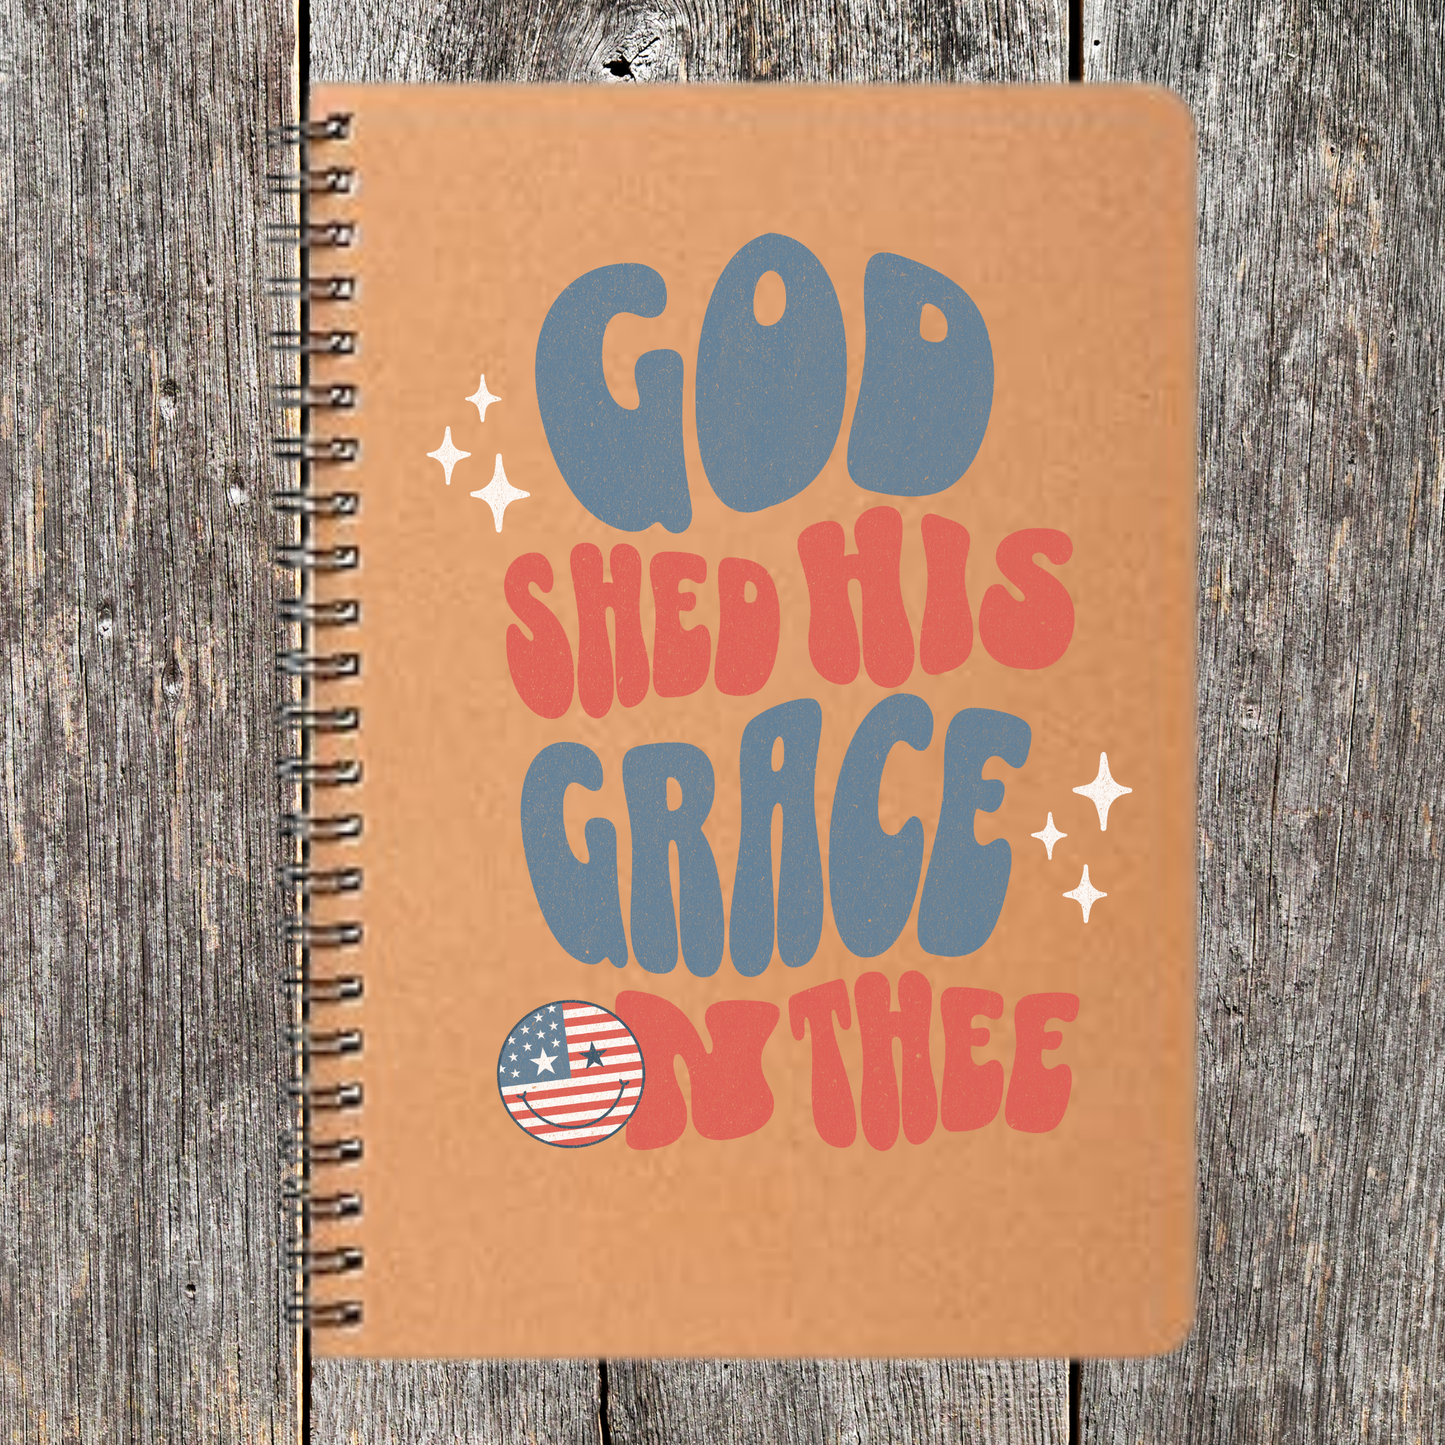 GOD
SHED HIS
GRACE
ON THEE